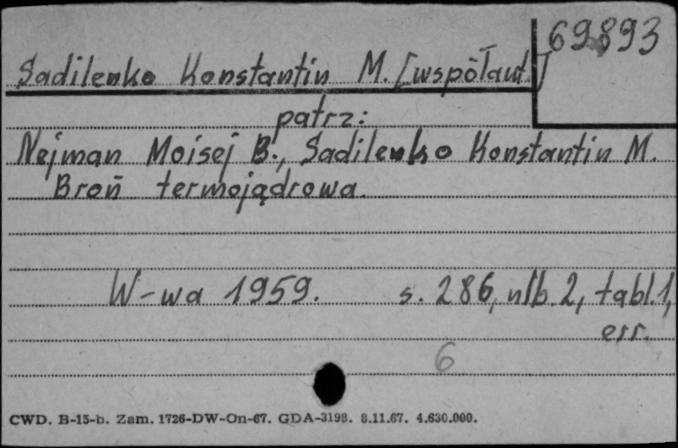 69893
Sadilenko Konstantin M. [współaut.]
patrz:
Nejman Moisej B., Sadilenko Konstantin M.
Broń termojądrowa.
W-wa 1959. s. 286, nlb. 2, tabl. 1,
err.
6
CWD. B-15-b. Zam. 1726-DW-On-67. GDA-3198. 8.11.67. 4.630.000.